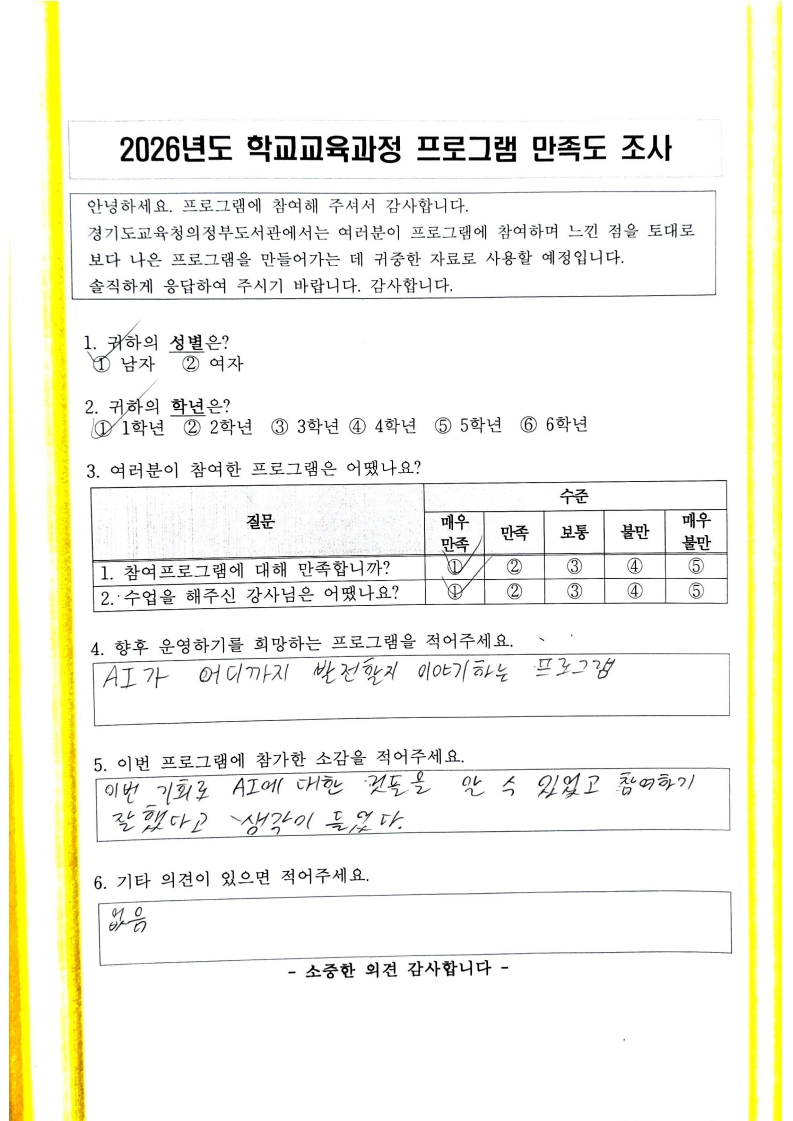 2026년도 학교교육과정 프로그램 만족도 조사
안녕하세요. 프로그램에 참여해 주셔서 감사합니다.
경기도교육청의정부도서관에서는 여러분이 프로그램에 참여하며 느낀 점을 토대로
보다 나은 프로그램을 만들어가는 데 귀중한 자료로 사용할 예정입니다.
솔직하게 응답하여 주시기 바랍니다. 감사합니다.
1. 귀하의 성별은?
① 남자 ② 여자
2. 귀하의 학년은?
① 1학년 ② 2학년 ③ 3학년 ④ 4학년 ⑤ 5학년 ⑥ 6학년
3. 여러분이 참여한 프로그램은 어땠나요?
질문 수준
매우 만족 만족 보통 불만 매우 불만
1. 참여프로그램에 대해 만족합니까? ① ② ③ ④ ⑤
2. 수업을 해주신 강사님은 어땠나요? ① ② ③ ④ ⑤
4. 향후 운영하기를 희망하는 프로그램을 적어주세요.
AI가 어디까지 발전할지 이야기하는 프로그램
5. 이번 프로그램에 참가한 소감을 적어주세요.
이번 기회로 AI에 대한 것들을 알 수 있었고 참여하기
잘했다고 생각이 들었다.
6. 기타 의견이 있으면 적어주세요.
없음
- 소중한 의견 감사합니다 -